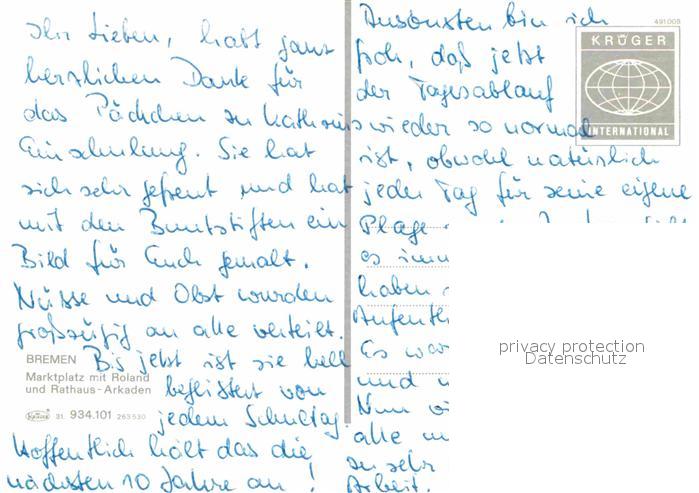 Ihr Lieben, habt ganz
herzlichen Dank für
das Päckchen zu Katharinas
Einschulung. Sie hat
sich sehr gefreut und hat
mit den Buntstiften ein
Bild für Euch gemalt.
Nüsse und Obst wurden
großzügig an alle verteilt.
Bis jetzt ist sie hell
begeistert von
jedem Schultag.
Hoffentlich hält das die
nächsten 10 Jahre an!
BREMEN
Marktplatz mit Roland
und Rathaus-Arkaden
Krüger 31. 934.101 263530
Ansonsten bin ich
froh, daß jetzt
der Tagesablauf
wieder so normal
ist, obwohl natürlich
jeder Tag für seine eigene
Plage
es
haben
Es war
und
Nun
alle
zu sehr
Arbeit.
491008
KRÜGER
INTERNATIONAL
privacy protection
Datenschutz